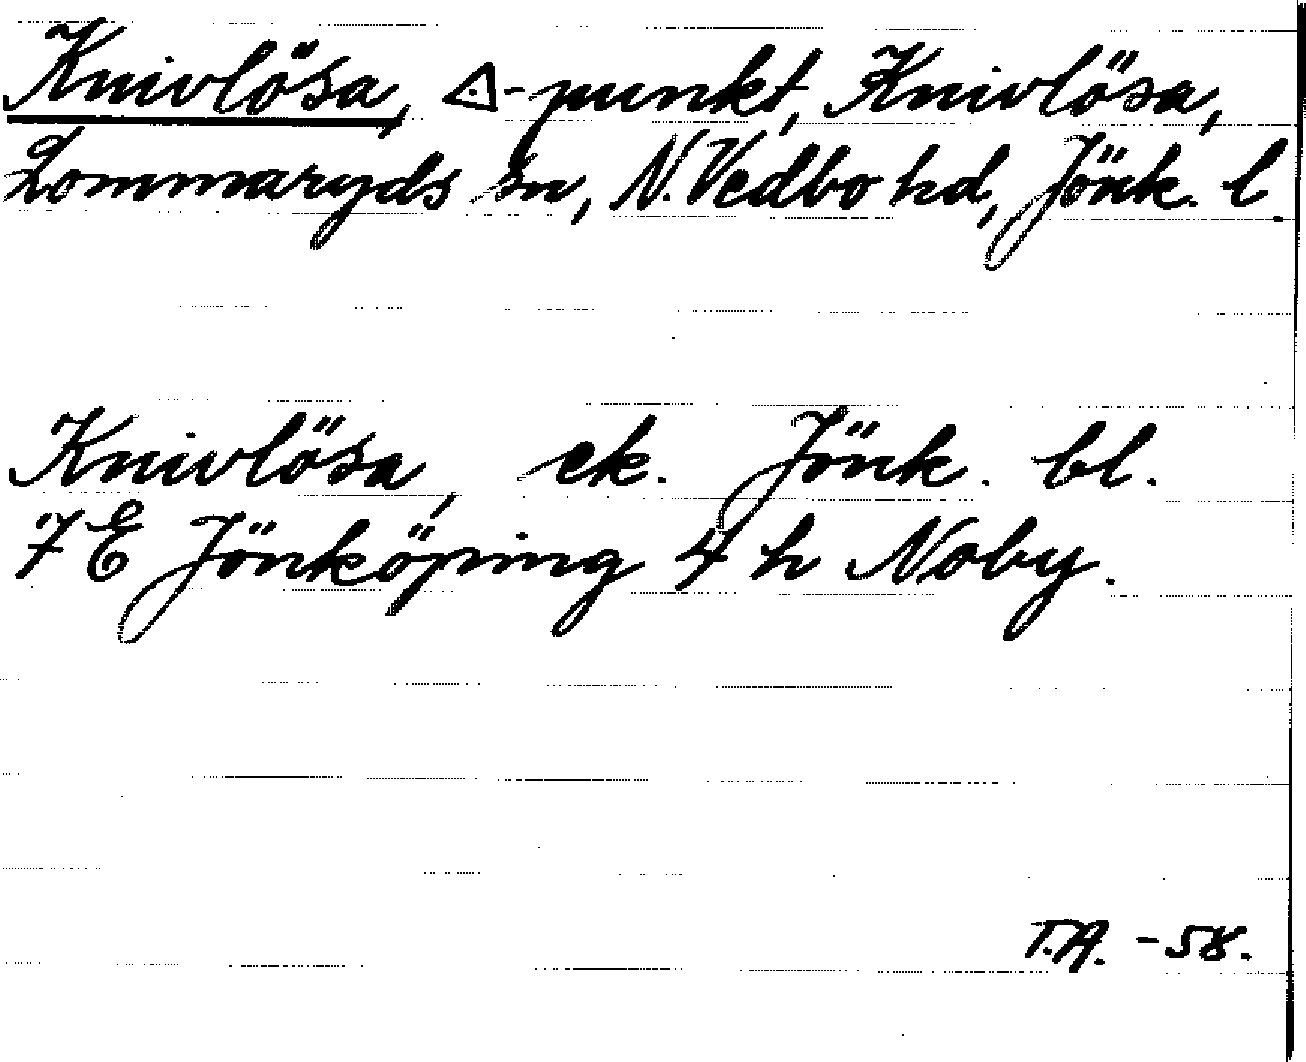 Knivlösa, ⟁-punkt, Knivlösa,
Lommaryds sn, N. Vedbo hd, Jönk. l.
Knivlösa, ek. Jönk. bl.
7 E Jönköping 4 h Noby.
T.A. -58.